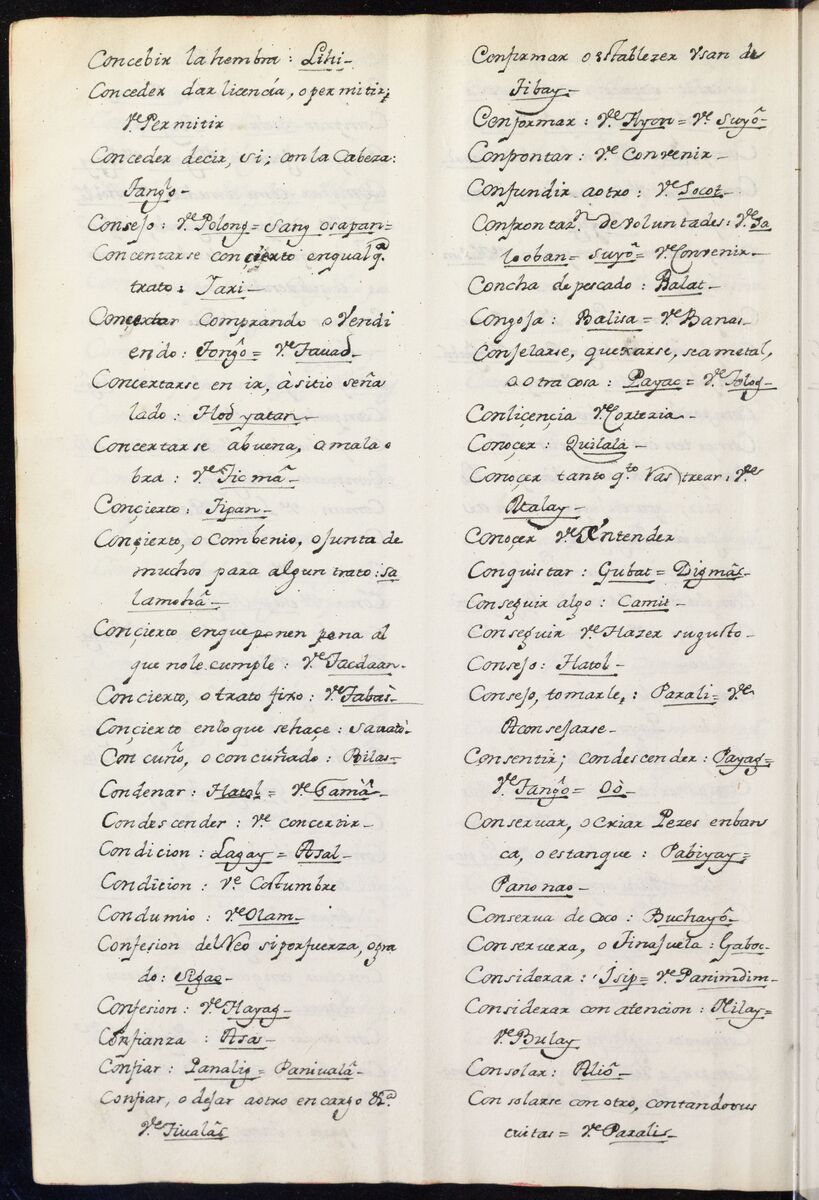 Concebir la hembra: Lihi_
Conceder dar licencia, o permitir;
Ve. Permitir
Conceder decir, si; con la Cabeza:
Tangõ_
Consejo: Ve. Polong= Sang osapan=
Concentarse con çierto en qual q.a
trato: Taxi_
Concertar comprando o Vendi
endo: Tongõ= Ve. Tauad_
Concertarse en ir, à sitio seña
lado: Hod yatan_
Concertarse abuena, o mala o
bra: Ve. Ticmâ_
Conçierto: Tipan_
Conçierto, o Combenio, o junta de
muchos para algun trato: sa
lamohâ_
Conçierto enque ponen pena al
que nole cumple: Ve. Tacdaan_
Concierto, o trato fixo: Ve. Tabas_
Conçierto enloque sehaçe: Satato_
Con cuño, o concuñado: Bilas_
Condenar: Hatol= Ve. Gamâ_
Condescender: Ve concertir_
Condicion: Lagay= Asal_
Condicion: Ve. Costumbre
Condumio: Ve Olam_
Confesion del Reo si por fuerza, o gra
do: Sigao_
Confesion: Ve. Hayag_
Confianza: Asa_
Confiar: Panalig= Paniualâ_
Confiar, o dejar aotro encargo &a.
Ve. Tiualâs
Confirmar o establezer Vsan de
Tibay_
Conformar: Ve. Ayon= Ve. Suyõ_
Confrontar: Ve. Convenir_
Confundir aotro: Ve. Socot_
Confrontaz.n de Voluntades: Ve. Sa
looban= Suyõ= Ve. Convenir_
Concha de pescado: Balat_
Congoja: Balisa= Ve. Banas_
Conjelarse, quexarse, sea metal,
o otra cosa: Payac= Ve. Tolog_
Conliçençia Ve. Cortezia_
Conoçer: Quilala_
Conoçer tanto q.to Vas trear: Ve.
Atalay_
Conoçer Ve. Entender
Conquistar: Gubat= Digmâ_
Conseguir algo: Camit_
Conseguir Ve. Hazer sugusto_
Consejo: Hatol_
Consejo, tomarle,: Parali= Ve.
Aconsejarse_
Consentir; condescender: Payag=
Ve. Tangõ= Oò_
Conseruar, o Criar Pezes enban
ca, o estanque: Pabiyay=
Panonao_
Conserua de Coco: Buchayõ_
Conseruera, o Tinajuela: Gaboc_
Considerar: Isip= Ve. Panimdim_
Considerar con atencion: Nilay=
Ve. Bulay
Consolar: Aliõ_
Consolarse con otro, contandosus
cuitas= Ve. Paralis_